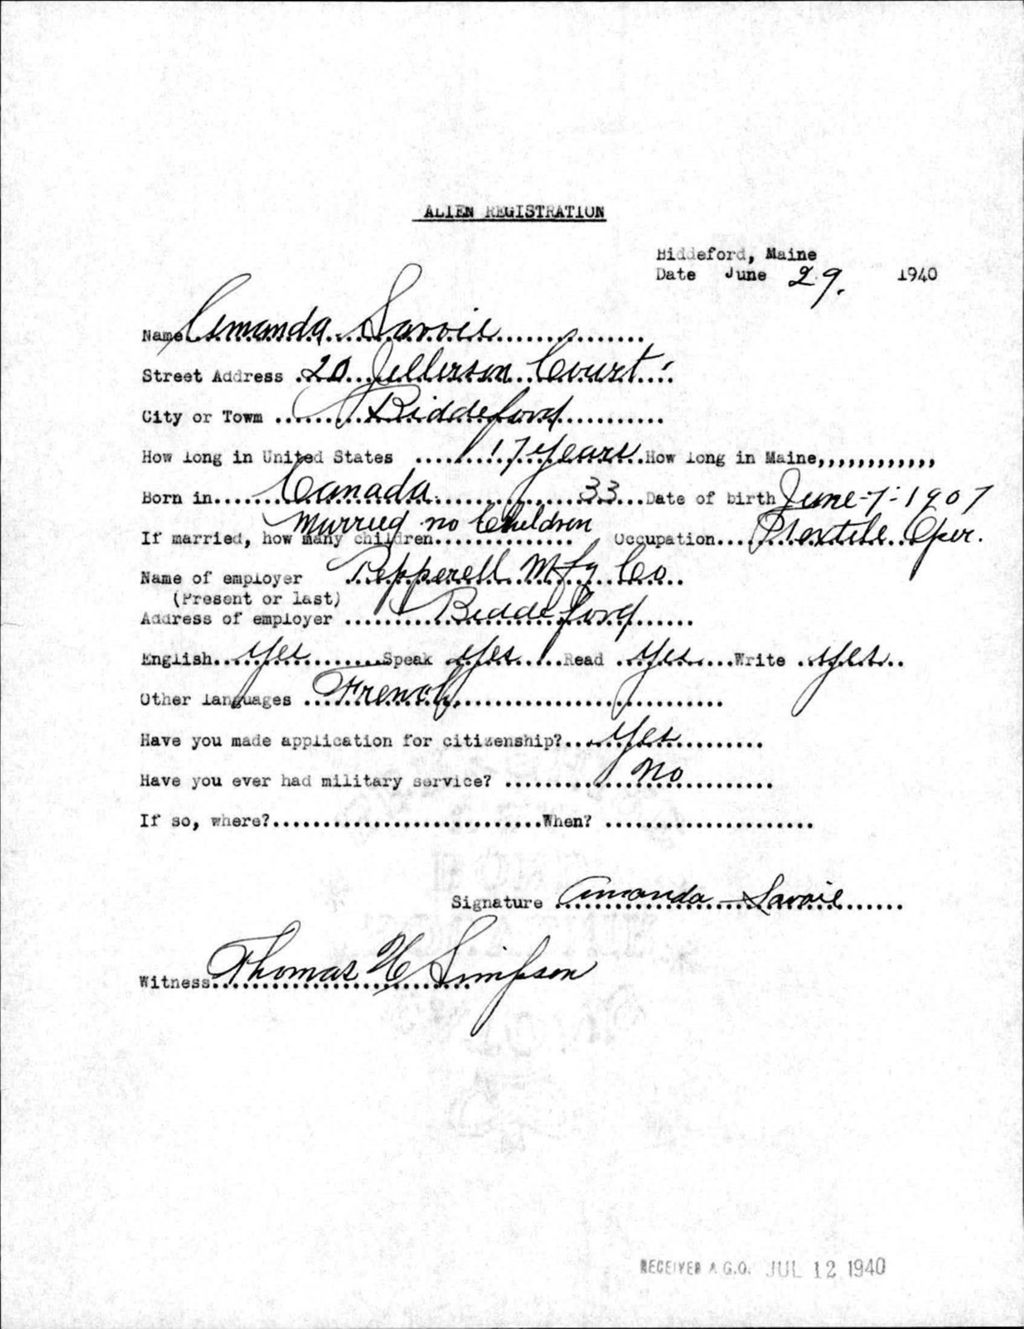 ALIEN REGISTRATION
Biddeford, Maine
Date June 29. 1940
Name Amanda Savoie
Street Address 20 Jefferson Court
City or Town Biddeford
How long in United States 17 years How long in Maine,,,,,,,,,,,,
Born in Canada 33 Date of birth June-7-1907
If married, how many children Married no Children Occupation Textile Oper.
Name of employer Pepperell Mfg Co
(Present or last)
Address of employer Biddeford
English yes Speak yes Read yes Write yes
Other languages French
Have you made application for citizenship? Yes
Have you ever had military service? no
If so, where? When?
Signature Amanda Savoie
Witness Thomas H Simpson
RECEIVED A.G.O. JUL 12 1940